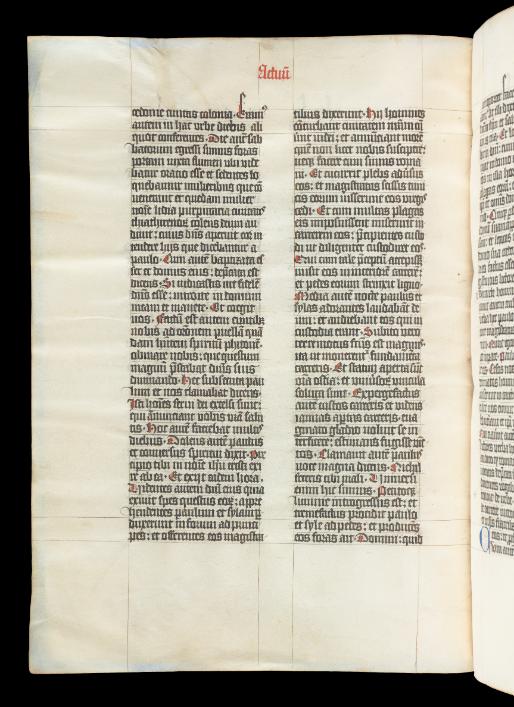 Actuū
cedonie ciuitas colonia. Eram9
autem in hac vrbe diebus ali
quot conferentes. Die autē sab
batorum egressi sumus foras
portam iuxta flumen vbi vide
batur oratio esse et sedentes lo
quebamur mulieribus que cō
uenerant et quedam mulier
noīe lidia purpuraria ciuitatis
thiathirenoꝝ colens deum au
diuit: cuius dn̄s aperuit cor in
tendere hijs que dicebantur a
paulo. Cum autē baptizata es
set et domus eius: dep̄cata est
dicens. Si iudicastis me fidelē
dn̄o esse: introite in domum
meam et manete. Et coegit
nos. Factū est autem euntib3
nobis ad orōnem puellā quā
dam habentem spiritū phitonē
obuiare nobis: que questum
magnū p̄stabat dn̄is suis
diuinando. Hec subsecuta pau
lum et nos clamabat dicens.
Isti hoīes serui dei excelsi sunt:
qui ānunciant vobis viā salu
tis. Hoc autē faciebat multis
diebus. Dolens autē paulus
et conuersus spiritui dixit. Pre
cipio tibi in noīe ihū cristi exi
re ab ea. Et exijt eadem hora.
Uidentes autem dn̄i eius quia
exiuit spes questus eoꝝ: appre
hendentes paulum et sylam:
duxerunt in forum ad princi
pes: et offerentes eos magistra
tibus dixerunt. Hij homines
cōturbant ciuitatem nr̄am cū
sint iudei: et annūciant morē
quē non licet nobis suscipere:
neqꝫ facere cum simus roma
ni. Et cucurrit plebs aduersus
eos: et magistratus scissis tuni
cis eorum iusserunt eos virgis
cedi. Et cum multas plagas
eis imposuissent miserunt in
carcerem eos: p̄cipientes custo
di ut diligenter custodiret eos.
Qui cum tale p̄ceptū accepisset
misit eos in interiorē carcerē:
et pedes eorum strinxit ligno.
Media autē nocte paulus et
sylas adorantes laudabāt de
um: et audiebant eos qui in
custodia erant. Subito vero
terremotus factus est magnus
ita ut mouerent᷑ fundamēta
carceris. Et statim aperta sūt
oīa ostia: et vniuersoꝝ vincula
soluta sunt. Expergefactus
autē custos carceris et videns
ianuas aptas carceris: eua
ginato gladio voluit se in
terficere: estimans fugisse vīc
tos. Clamauit autē paulus
voce magna dicens. Nichil
feceris tibi mali. Uniuersi
enim hic sumus. Petitoqꝫ
lumine introgressus est: et
tremefactus procidit paulo
et syle ad pedes: et producens
eos foras ait. Domini: quid